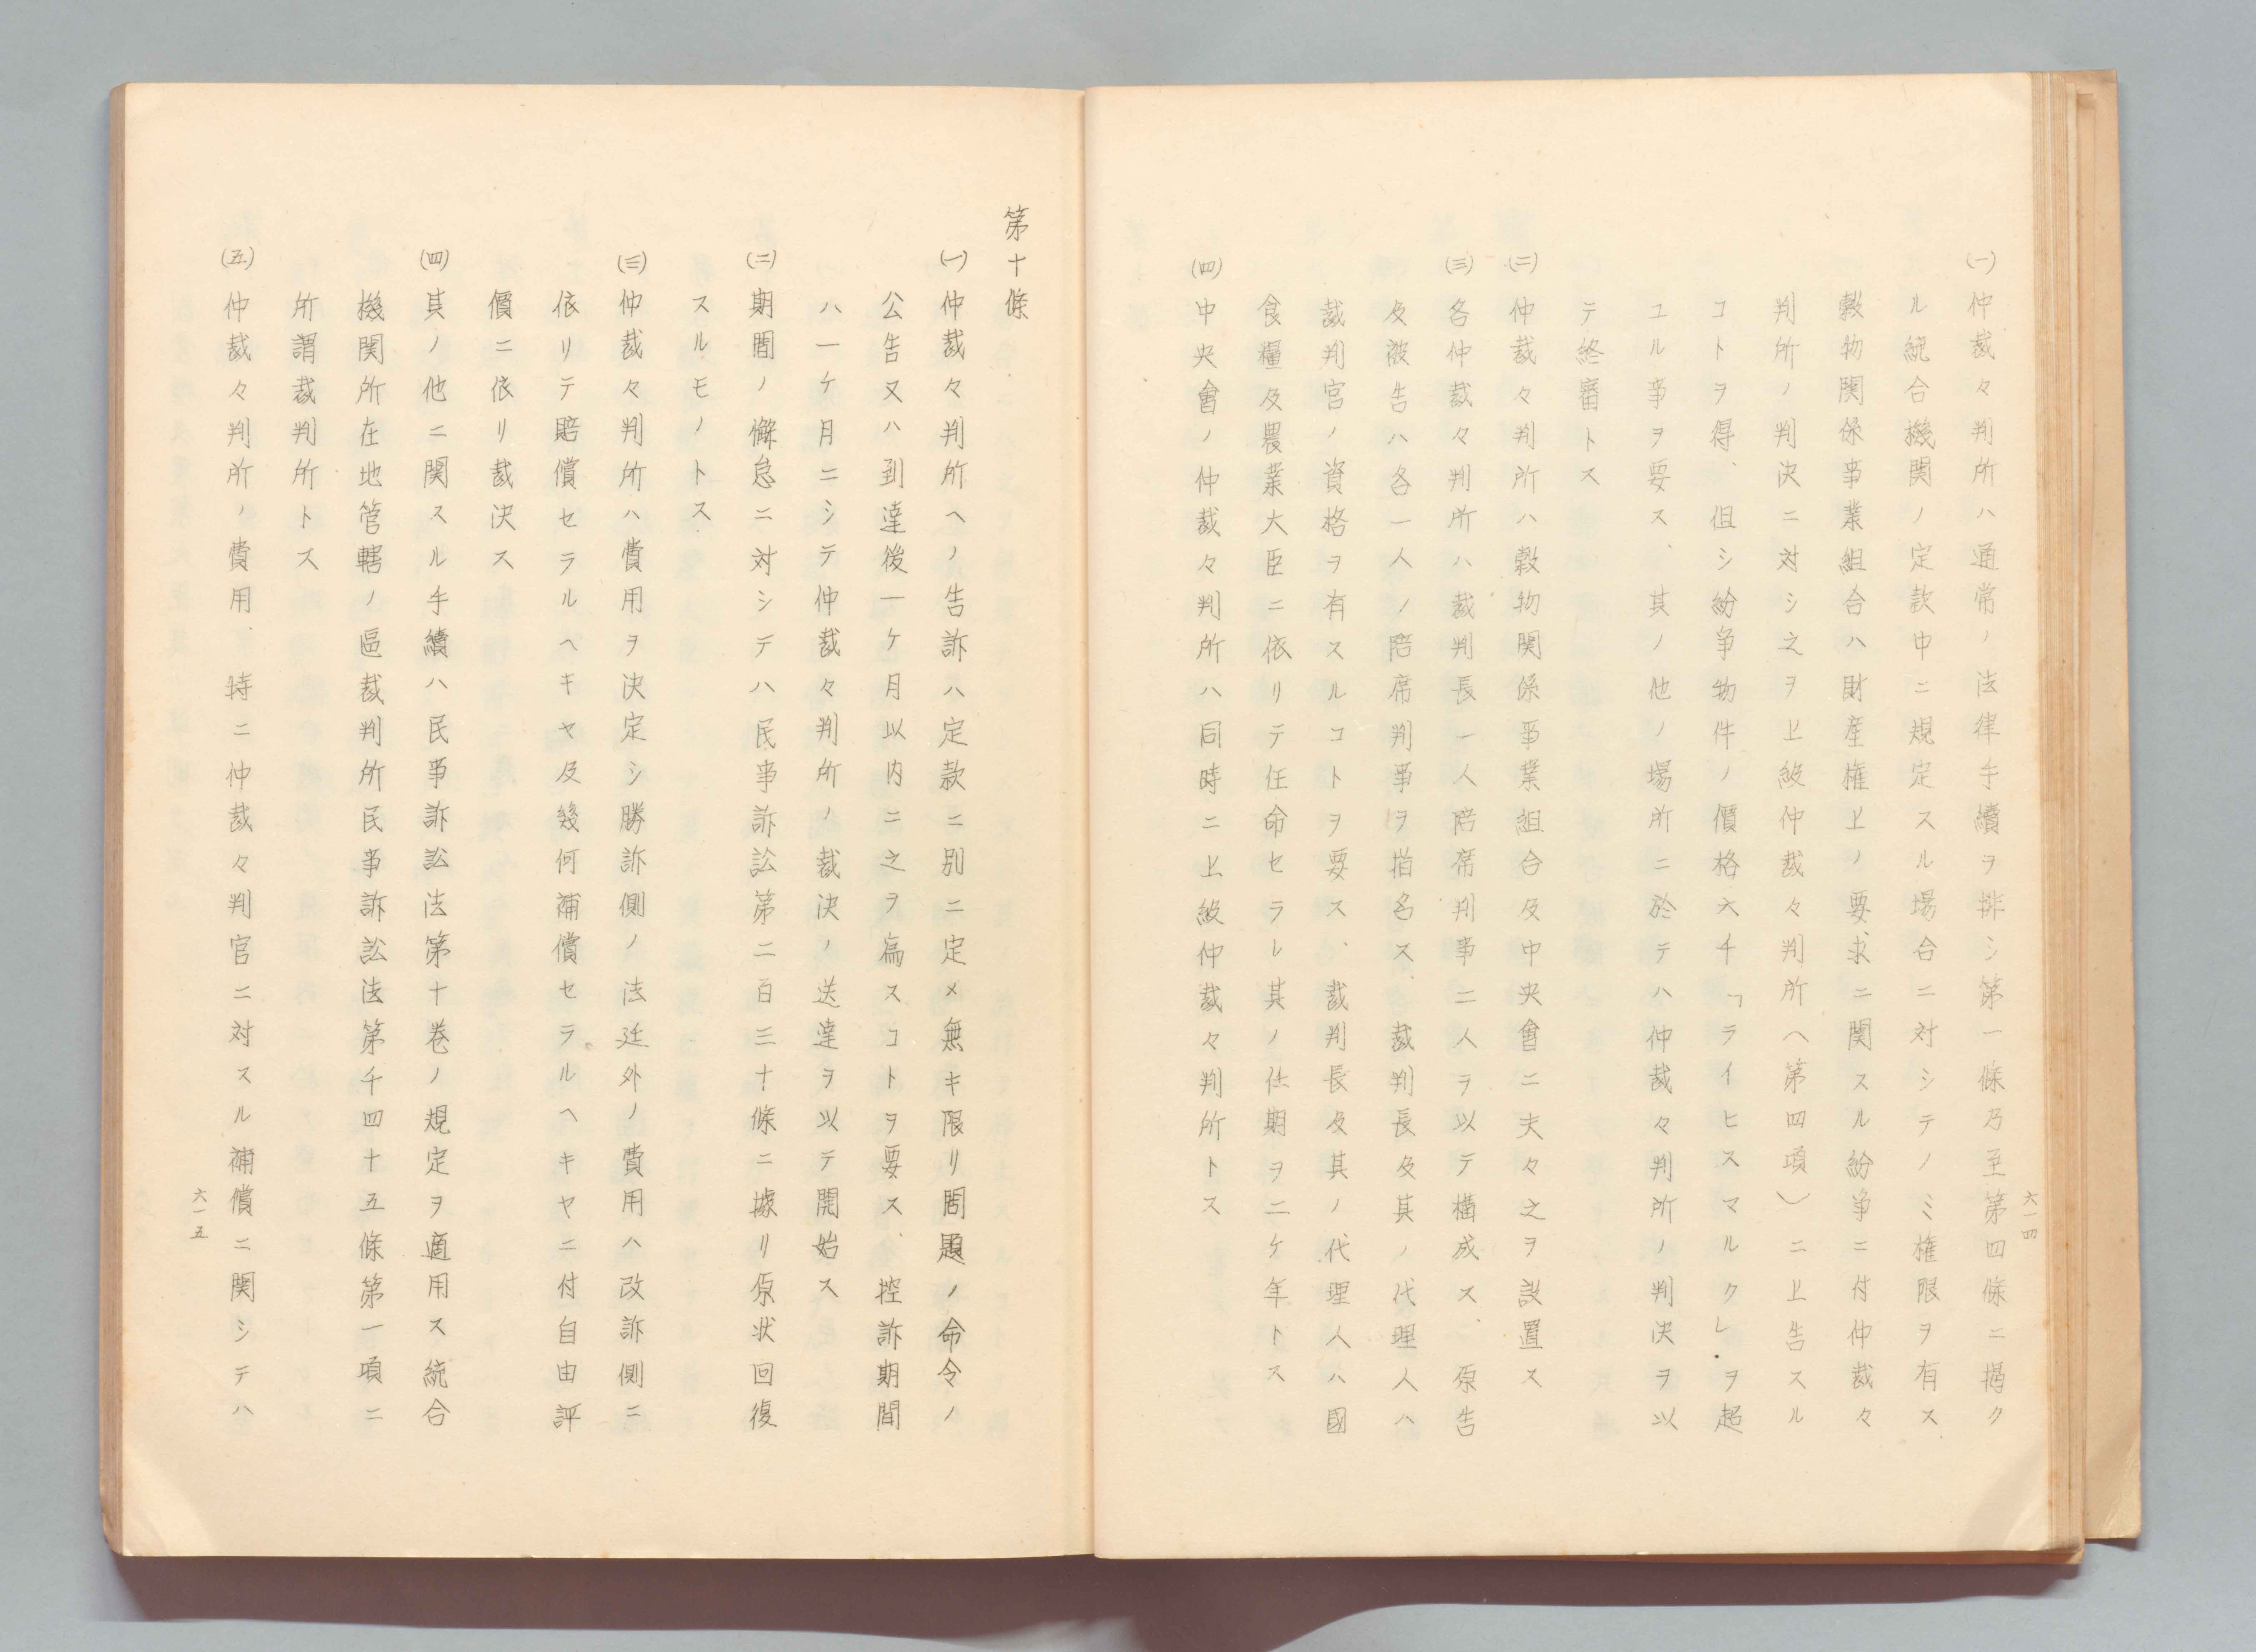 (一) 仲裁々判所ハ通常ノ法律手續ヲ排シ第一條乃至第四條ニ揭ク
ル統合機関ノ定款中ニ規定スル場合ニ対シテノミ権限ヲ有ス
穀物関係事業組合ハ財産権上ノ要求ニ関スル紛争ニ付仲裁々
判所ノ判決ニ対シ之ヲ上級仲裁々判所(第四項)ニ上告スル
コトヲ得、但シ紛争物件ノ價格六千「ライヒスマルク」ヲ超
ユル事ヲ要ス、其ノ他ノ場所ニ於テハ仲裁々判所ノ判決ヲ以
テ終審トス
(二) 仲裁々判所ハ穀物関係事業組合及中央會ニ夫々之ヲ設置ス
(三) 各仲裁々判所ハ裁判長一人陪席判事二人ヲ以テ構成ス、原告
及被告ハ各一人ノ陪席判事ヲ指名ス、裁判長及其ノ代理人ハ
裁判官ノ資格ヲ有スルコトヲ要ス、裁判長及其ノ代理人ハ國
食糧及農業大臣ニ依リテ任命セラレ其ノ任期ヲ二ケ年トス
(四) 中央會ノ仲裁々判所ハ同時ニ上級仲裁々判所トス
六一四
第十條
(一) 仲裁々判所ヘノ告訴ハ定款ニ別ニ定メ無キ限リ問題ノ命令ノ
公告又ハ到達後一ケ月以内ニ之ヲ為スコトヲ要ス、控訴期間
ハ一ケ月ニシテ仲裁々判所ノ裁決ノ送達ヲ以テ開始ス
(二) 期間ノ懈怠ニ対シテハ民事訴訟第二百三十條ニ據リ原状回復
スルモノトス
(三) 仲裁々判所ハ費用ヲ決定シ勝訴側ノ法廷外ノ費用ハ改訴側ニ
依リテ賠償セラルヘキヤ及幾何補償セラルヘキヤニ付自由評
價ニ依リ裁決ス
(四) 其ノ他ニ関スル手續ハ民事訴訟法第十巻ノ規定ヲ適用ス統合
機関所在地管轄ノ區裁判所民事訴訟法第千四十五條第一項ニ
所謂裁判所トス
(五) 仲裁々判所ノ費用、特ニ仲裁々判官ニ対スル補償ニ関シテハ
六一五